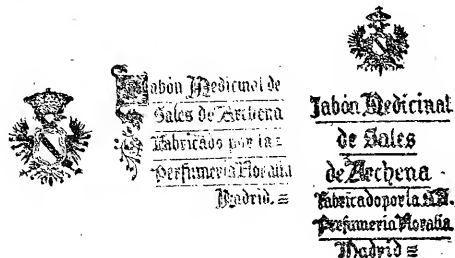 Jabón Medicinal de
Sales de Archena
Fabricado por la =
Perfumería Floralia
Madrid. =
Jabón Medicinal
de Sales
de Archena
Fabricado por la
Perfumería Floralia
Madrid =